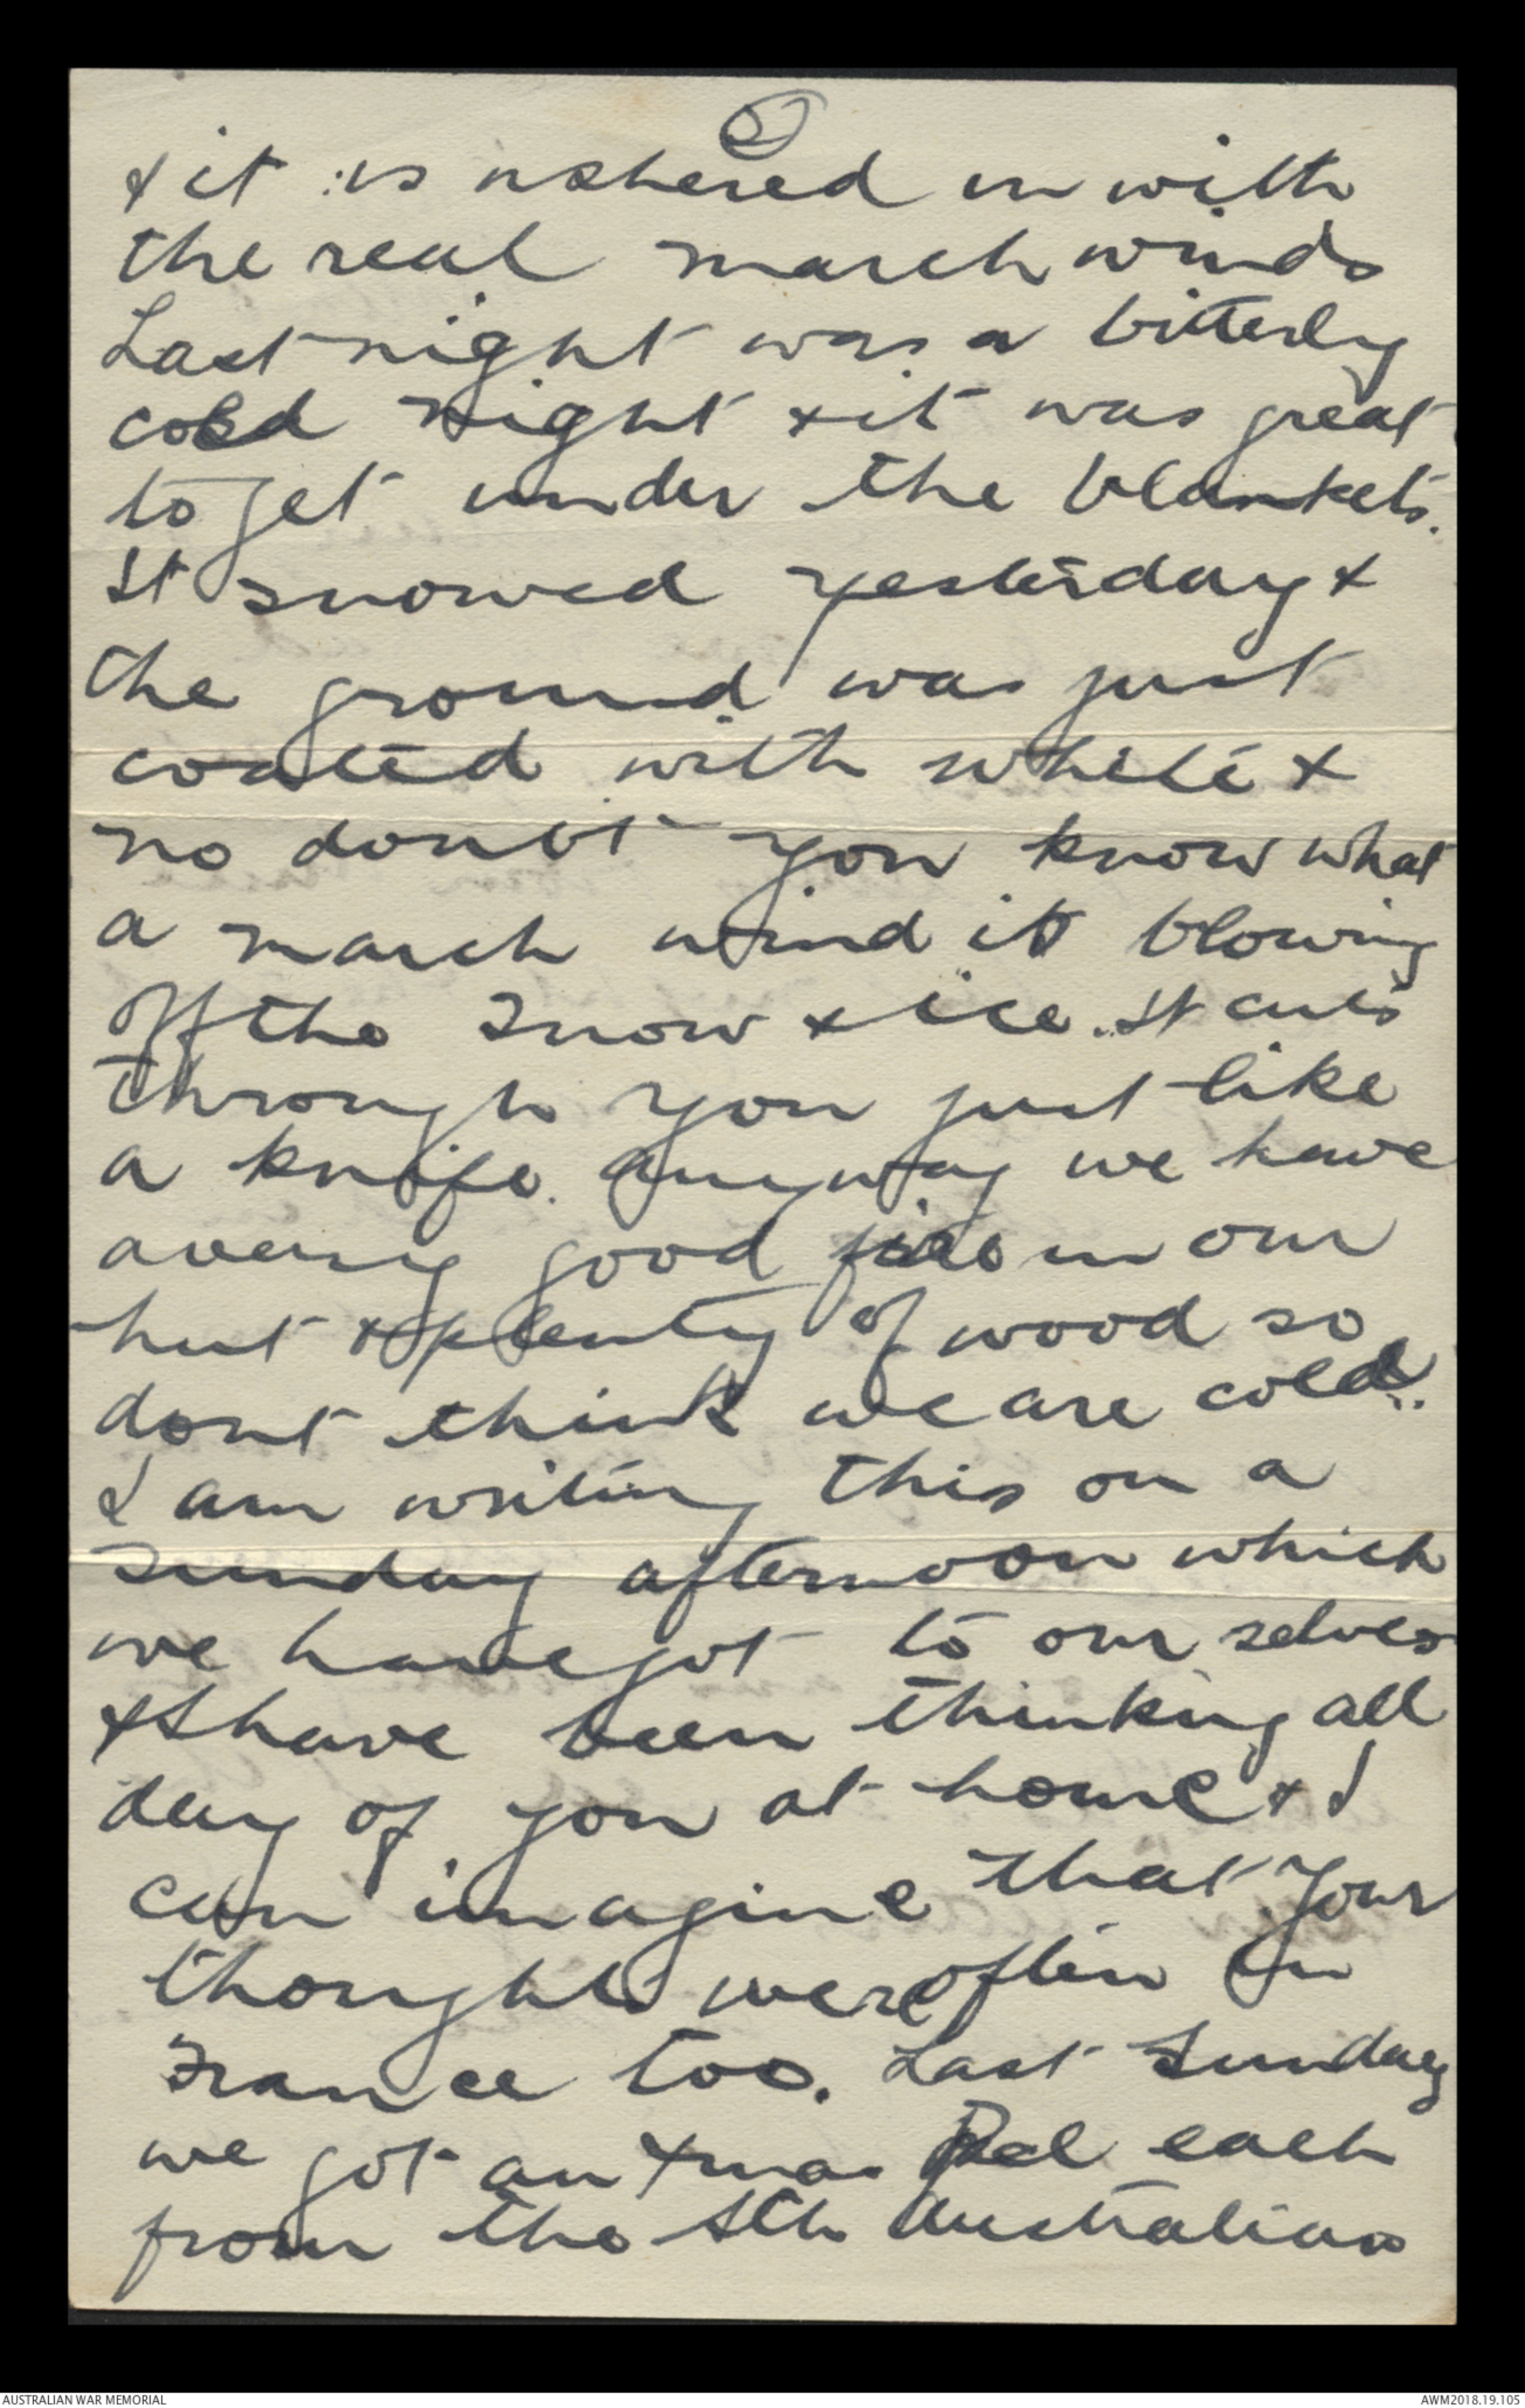 2
& it is ushered in with
the real march winds
Last night was a bitterly
cold night & it was great
to get under the blankets.
It snowed yesterday &
the ground was just
coated with white &
no doubt you know what
a march wind is blowing
off the snow & ice. It cuts
through you just like
a knife. Anyway we have
a very good fire in our
hut & plenty of wood so
dont think we are cold.
I am writing this on a
Sunday afternoon which
we have got to our selves
& I have been thinking all
day of you at home & I
can imagine that your
thoughts were often in
France too. Last Sunday
we got an Xmas Pcl each
from the Sth Australian
AUSTRALIAN WAR MEMORIAL
AWM2018.19.105